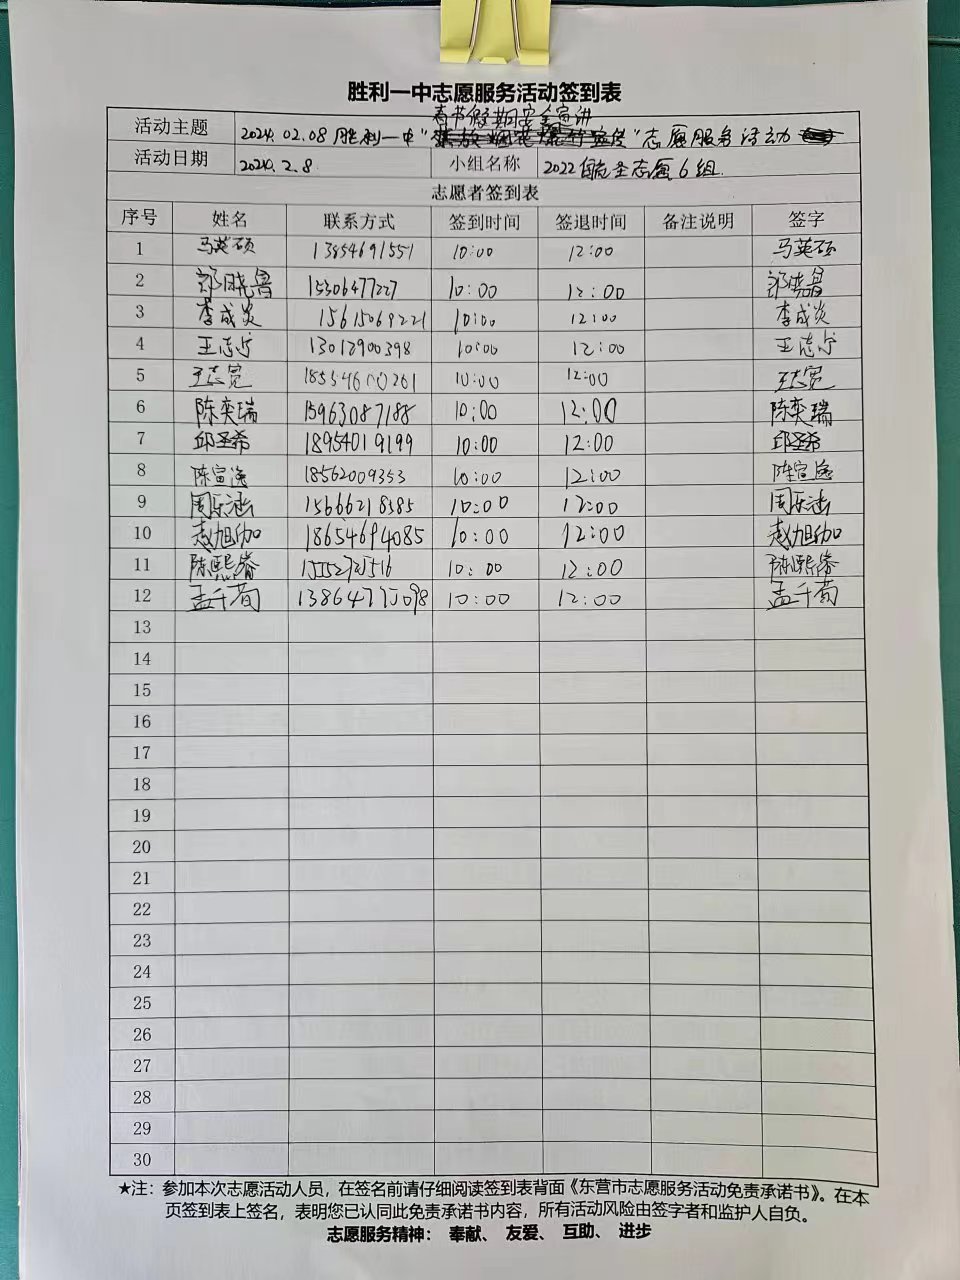 胜利一中志愿服务活动签到表
春节假期安全宣讲
活动主题 2024.02.08胜利一中“ ”志愿服务活动
活动日期 2024.2.8. 小组名称 2022 志愿6组.
志愿者签到表
序号 姓名 联系方式 签到时间 签退时间 备注说明 签字
1 马英硕 13854691551 10:00 12:00 马英硕
2 郭晓鲁 15306477227 10:00 12:00 郭晓鲁
3 李成炎 15615069221 10:00 12:00 李成炎
4 王志宁 13012900398 10:00 12:00 王志宁
5 王志宽 18554600261 10:00 12:00 王志宽
6 陈奕瑞 15963087188 10:00 12:00 陈奕瑞
7 邱圣希 18954019199 10:00 12:00 邱圣希
8 陈宣逸 18562009353 10:00 12:00 陈宣逸
9 周乐涵 15666218385 10:00 12:00 周乐涵
10 赵旭珈 18654694085 10:00 12:00 赵旭珈
11 陈熙睿 15552721516 10:00 12:00 陈熙睿
12 孟千荀 10:00 12:00 孟千荀
13
14
15
16
17
18
19
20
21
22
23
24
25
26
27
28
29
30
★注：参加本次志愿活动人员，在签名前请仔细阅读签到表背面《东营市志愿服务活动免责承诺书》。在本
页签到表上签名，表明您已认同此免责承诺书内容，所有活动风险由签字者和监护人自负。
志愿服务精神： 奉献、 友爱、 互助、 进步